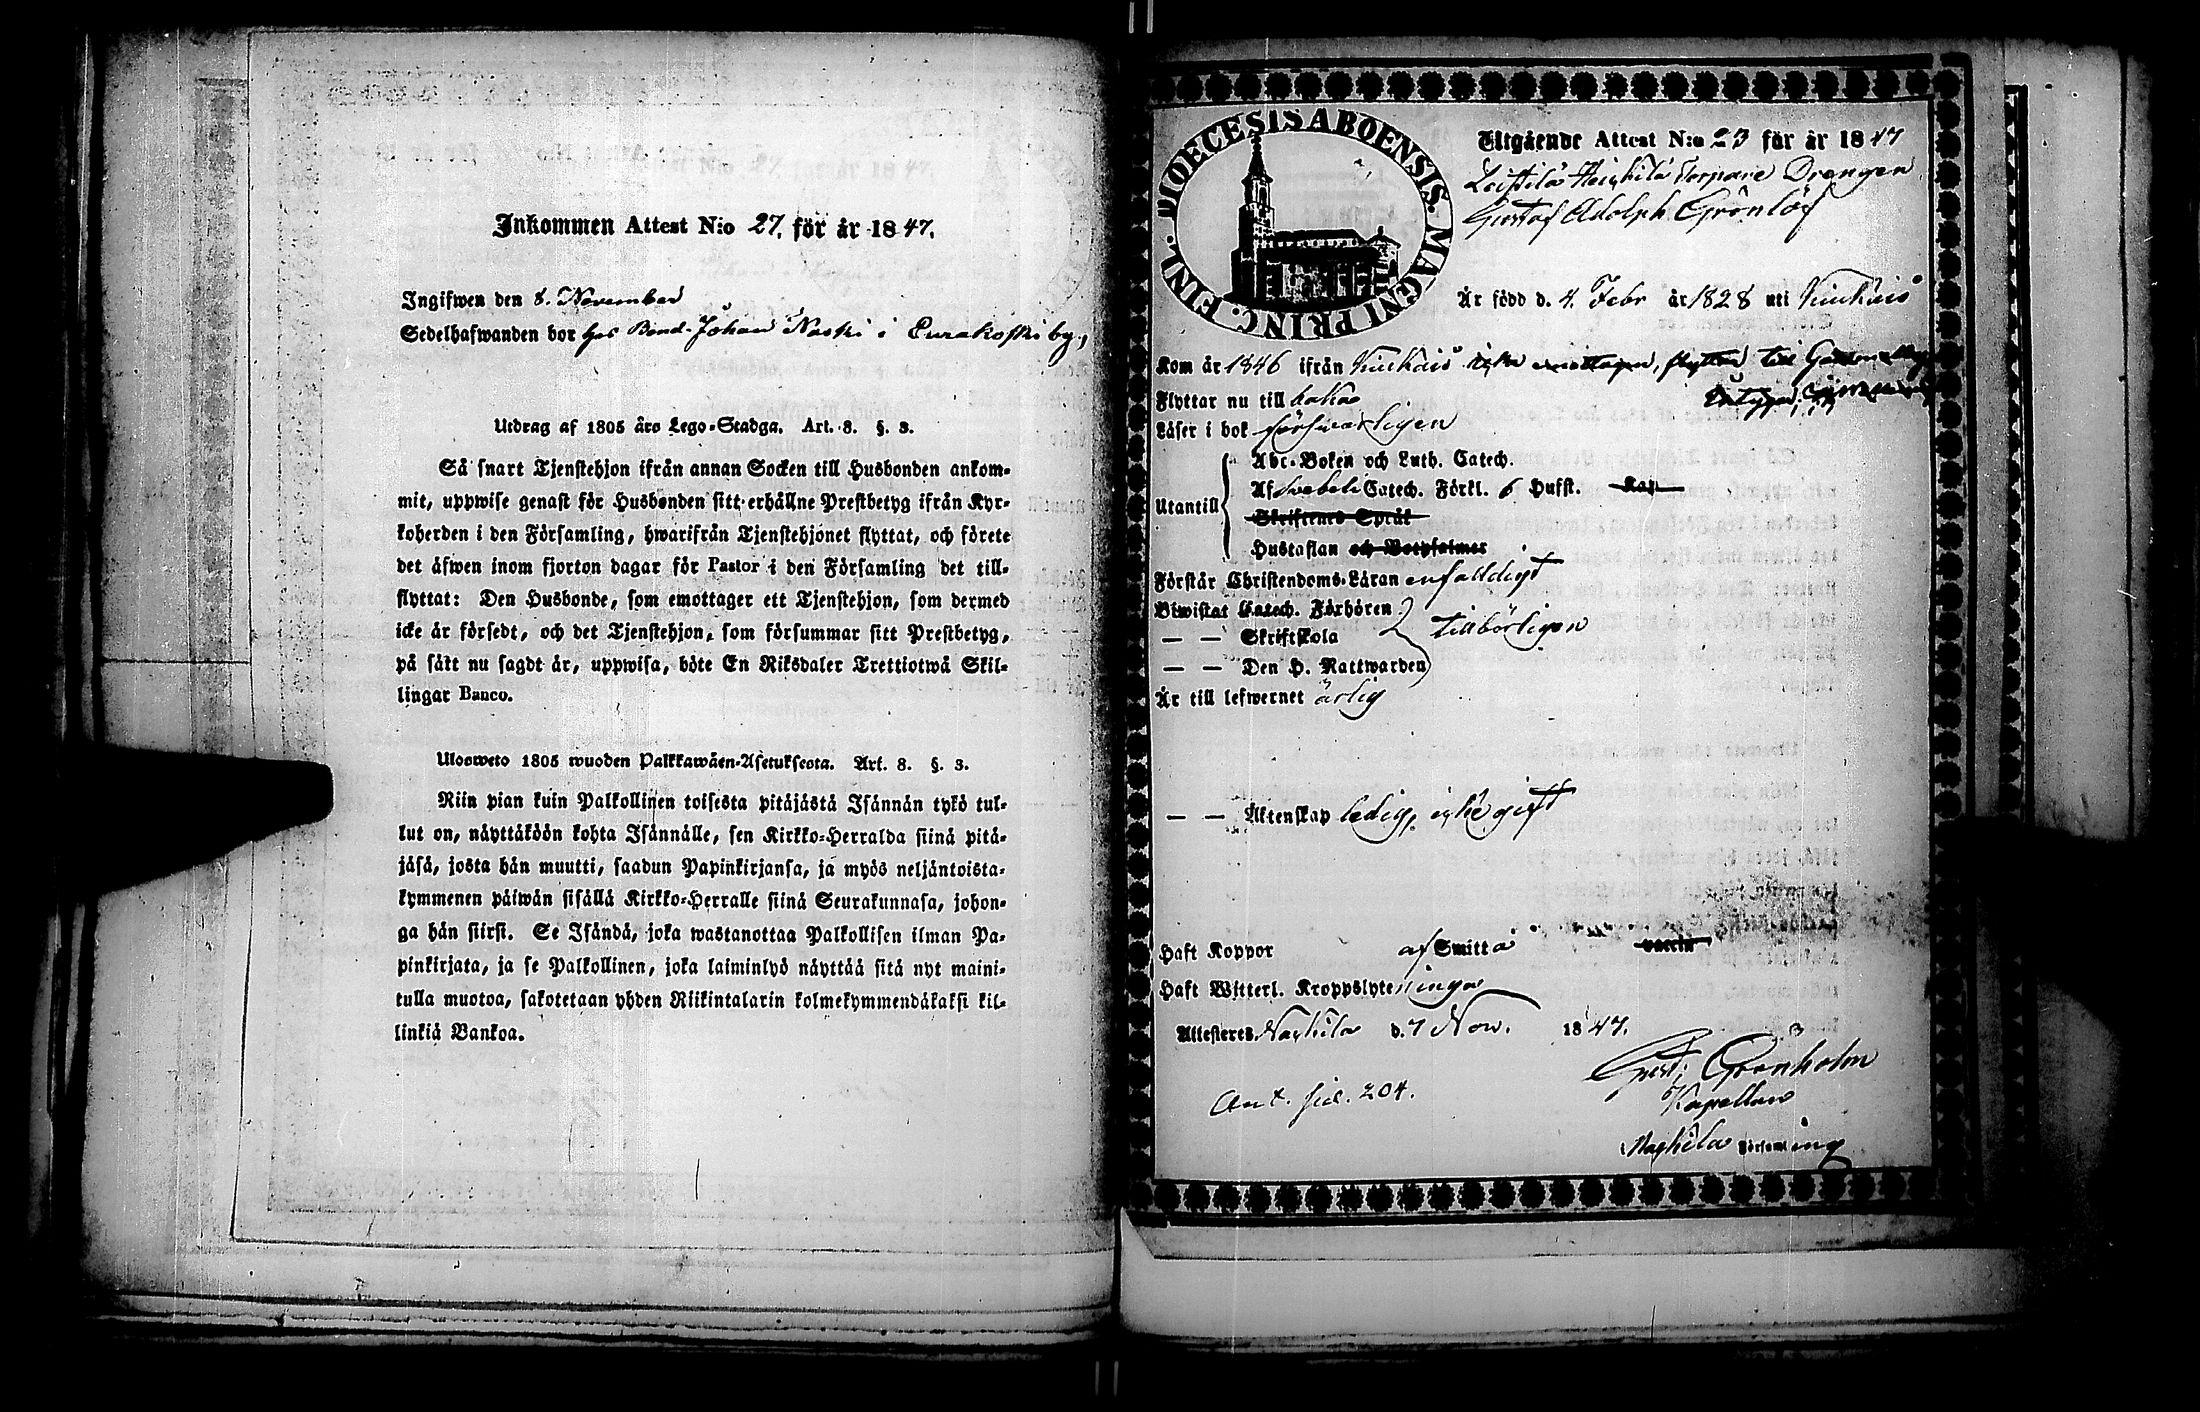 Inkommen Attest N:o 27. för år 1847.
Ingifwen den 8. November
Sedelhafwanden bor hos Bond. Johan Naski i Eurakoski by,
Utdrag af 1805 års Lego-Stadga. Art. 8. §. 3.
Så snart Tjenstehjon ifrån annan Socken till Husbonden ankom-
mit, uppwise genast för Husbonden sitt erhållne Prestbetyg ifrån Kyr-
koherden i den Församling, hwarifrån Tjenstehjonet flyttat, och förete
det äfwen inom fjorton dagar för Pastor i den Församling det till-
flyttat: Den Husbonde, som emottager ett Tjenstehjon, som dermed
icke är försedt, och det Tjenstehjon, som försummar sitt Prestbetyg,
på sätt nu sagdt är, uppwisa, böte En Riksdaler Trettiotwå Skil-
lingar Banco.
Ulosweto 1805 wuoden Palkkawäen-Asetuksesta. Art. 8. §. 3.
Niin pian kuin Palkollinen toisesta pitäjästä Isännän tykö tul-
lut on, näyttäköön kohta Isännälle, sen Kirkko-Herralda siinä pitä-
jäsä, josta hän muutti, saadun Papinkirjansa, ja myös neljäntoista-
kymmenen päiwän sisällä Kirkko-Herralle siinä Seurakunnasa, johon-
ga hän siirsi. Se Isändä, joka wastanottaa Palkollisen ilman Pa-
pinkirjata, ja se Palkollinen, joka laiminlyö näyttää sitä nyt maini-
tulla muotoa, sakotetaan yhden Riikintalarin kolmekymmendäkaksi kil-
linkiä Bankoa.
DIOECESIS ABOENSIS. MAGNI PRINC. FINL.
Utgående Attest N:o 23 för år 1847
Leistilä Heikkilä Torpare Drengen
Gustaf Adolph Grönlöf
Är född d. 4. Febr år 1828 uti Kiukais
Kom år 1846 ifrån Kiukais icke emottagen, flyttad till
Flyttar nu till baka
Läser i bok försvarligen
Utantill
Abc-Boken och Luth. Catech.
Af Svebeli Catech. Förkl. 6 Hufst. Kap
Skriftenes Språk
Hustaflan och Botpsalmer
Förstår Christendoms-Läran enfaldigt
Biwistat Catech. Förhören
— — Skriftskola tillbörligen
— — Den H. Nattwarden
Är till lefwernet ärlig
— — Äktenskap ledig, icke gift
Haft Koppor af Smitta vaccin
Haft Witterl. Kroppslyte inga
Attesteres Nakkila d. 7 Nov. 1847.
Gust: Grönholm
Kapellan
Ant. sid. 204.
Nakkila Församling